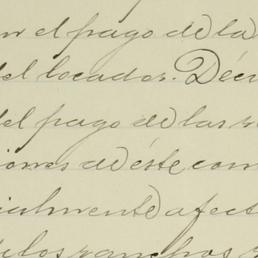 n el pago de la
del locador. Déc
del pago de las r
iones de éste com
ialmente afect
de los ranchos